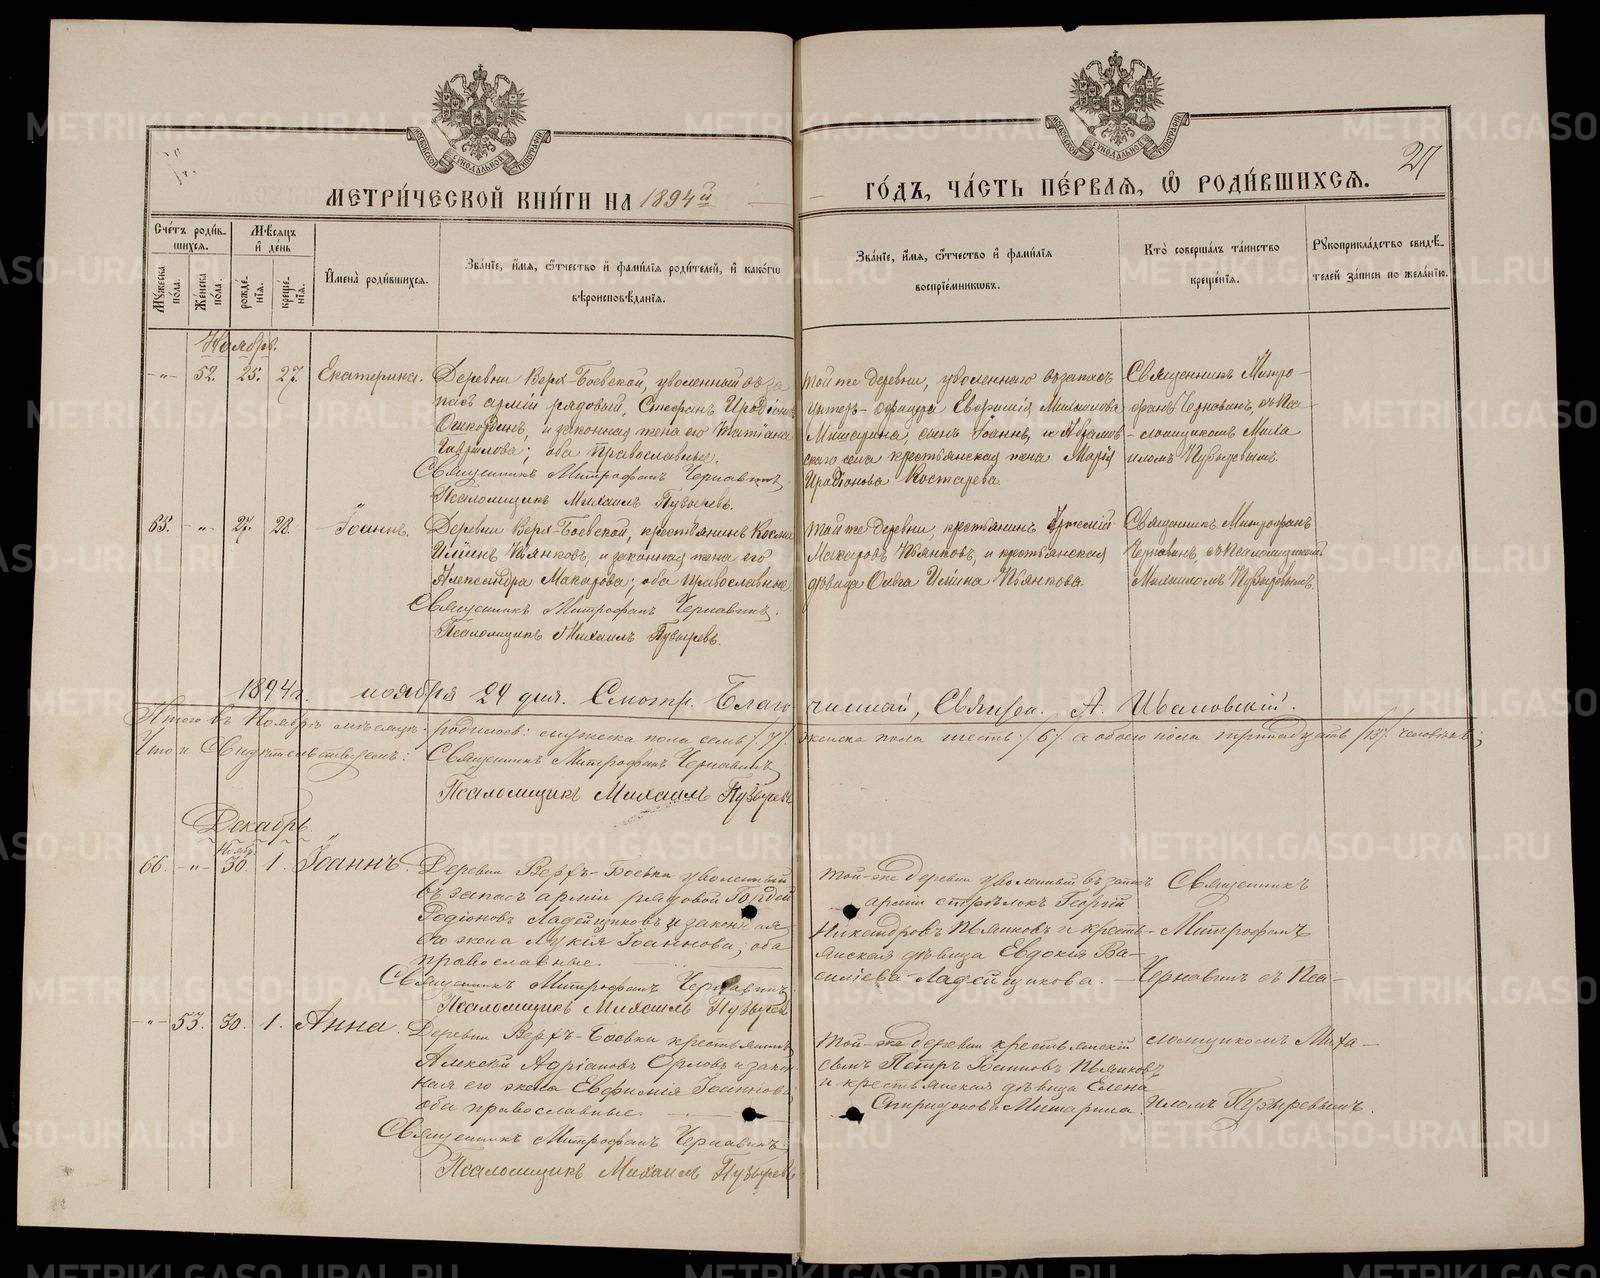 МЕТРИ́ЧЕСКОЙ КНИ́ГИ НА 1894й
ГО́ДЪ, ЧА́СТЬ ПЕ́РВАѦ, Ѡ҆ РОДИ́ВШИХСѦ.
27
Сче́тъ роди́в-
шихсѧ.
Мѣ́сѧцъ
и҆ де́нь
Мꙋ́жеска
по́ла.
Же́нска
по́ла.
рожде́-
нїѧ.
креще́-
нїѧ.
И҆мена̀ роди́вшихсѧ.
Зва́нїе, и҆́мѧ, ѻ҆́тчество и҆ фами́лїѧ роди́телей, и҆ како́гѡ
вѣроисповѣ́данїѧ.
Зва́нїе, и҆́мѧ, ѻ҆́тчество и҆ фами́лїѧ
воспрїе́мникѡвъ.
Кто̀ соверша́лъ та́инство
креще́нїѧ.
Рꙋкоприкла́дство свидѣ́-
телей за́писи по жела́нїю.
Ноябрь.
-"- 52. 25. 27. Екатерина.
Деревни Верх-Боевской, уволенный въ за
пасъ армiи рядовый, Стефанъ Иродiоновъ
и законная жена его Татiана
Гаврилова; оба православные.
Священникъ Митрофанъ Чернавинъ
Псаломщикъ Михаилъ Пузыревъ.
Той же деревни, уволеннаго въ запасъ
унтеръ-офицера Евфимiя Михаилова
Мишарина, сынъ Iоаннъ, и
скаго села крестьянская жена Марiя
Иродiонова Костарева
Священникъ Митро-
фанъ Чернавинъ, съ Пса-
ломщикомъ Миха
иломъ Пузыревымъ
65. -"- 27. 28. Iоаннъ.
Деревни Верх-Боевской, крестьянинъ Косма
Илiинъ Пьянковъ, и законная жена его
Александра Макарова; оба православные
Священникъ Митрофанъ Чернавинъ.
Псаломщикъ Михаилъ Пузыревъ.
Той же деревни, крестьянинъ Артемiй
Макаровъ Пьянковъ, и крестьянская
дѣвица Ольга Илiина Пьянкова.
Священникъ Митрофанъ
Чернавинъ, съ Псаломщикомъ
Михаиломъ Пузыревымъ.
1894 г. ноября 29 дня. Смотр. Благочинный, Священ. А. Ивановскiй.
Итого въ Ноябрѣ мѣсяцѣ родилось: мужеска пола семь /7/. женска пола шесть /6/ а обоего пола тринадцать /13/ человѣкъ;
Что и Свидѣтельствуемъ:
Священникъ Митрофанъ Чернавинъ
Псаломщикъ Михаилъ Пузыревъ
Декабрь.
Ноябр.
66. -"- 30. 1. Iоаннъ.
Деревни Верхъ-Боевка уволенный
въ запасъ армiи рядовой Гордей
Родiоновъ Ладейщиковъ и законная
его жена Лукiя Iоаннова, оба
православные.
Священникъ Митрофанъ Чернавинъ
Псаломщикъ Михаилъ Пузыревъ
Той-же деревни уволенный въ запасъ
армiи стрѣлокъ Георгiй
Никандровъ Пьянковъ и кресть-
янская дѣвица Евдокiя Ва-
сильева Ладейщикова.
Священникъ
Митрофанъ
Чернавинъ съ Пса-
-"- 53. 30. 1. Анна.
Деревни Верхъ-Боевки крестьянинъ
Алексѣй Адрiановъ Орловъ и закон-
ная его жена Евфимiя Iоаннова
оба православные.
Священникъ Митрофанъ Чернавинъ
Псаломщикъ Михаилъ Пузыревъ
Той-же деревни крестьянскiй
сынъ Петръ Iоанновъ Пьянковъ
и крестьянская дѣвица Елена
Спиридонова Мишарина.
ломщикомъ Миха-
иломъ Пузыревымъ.